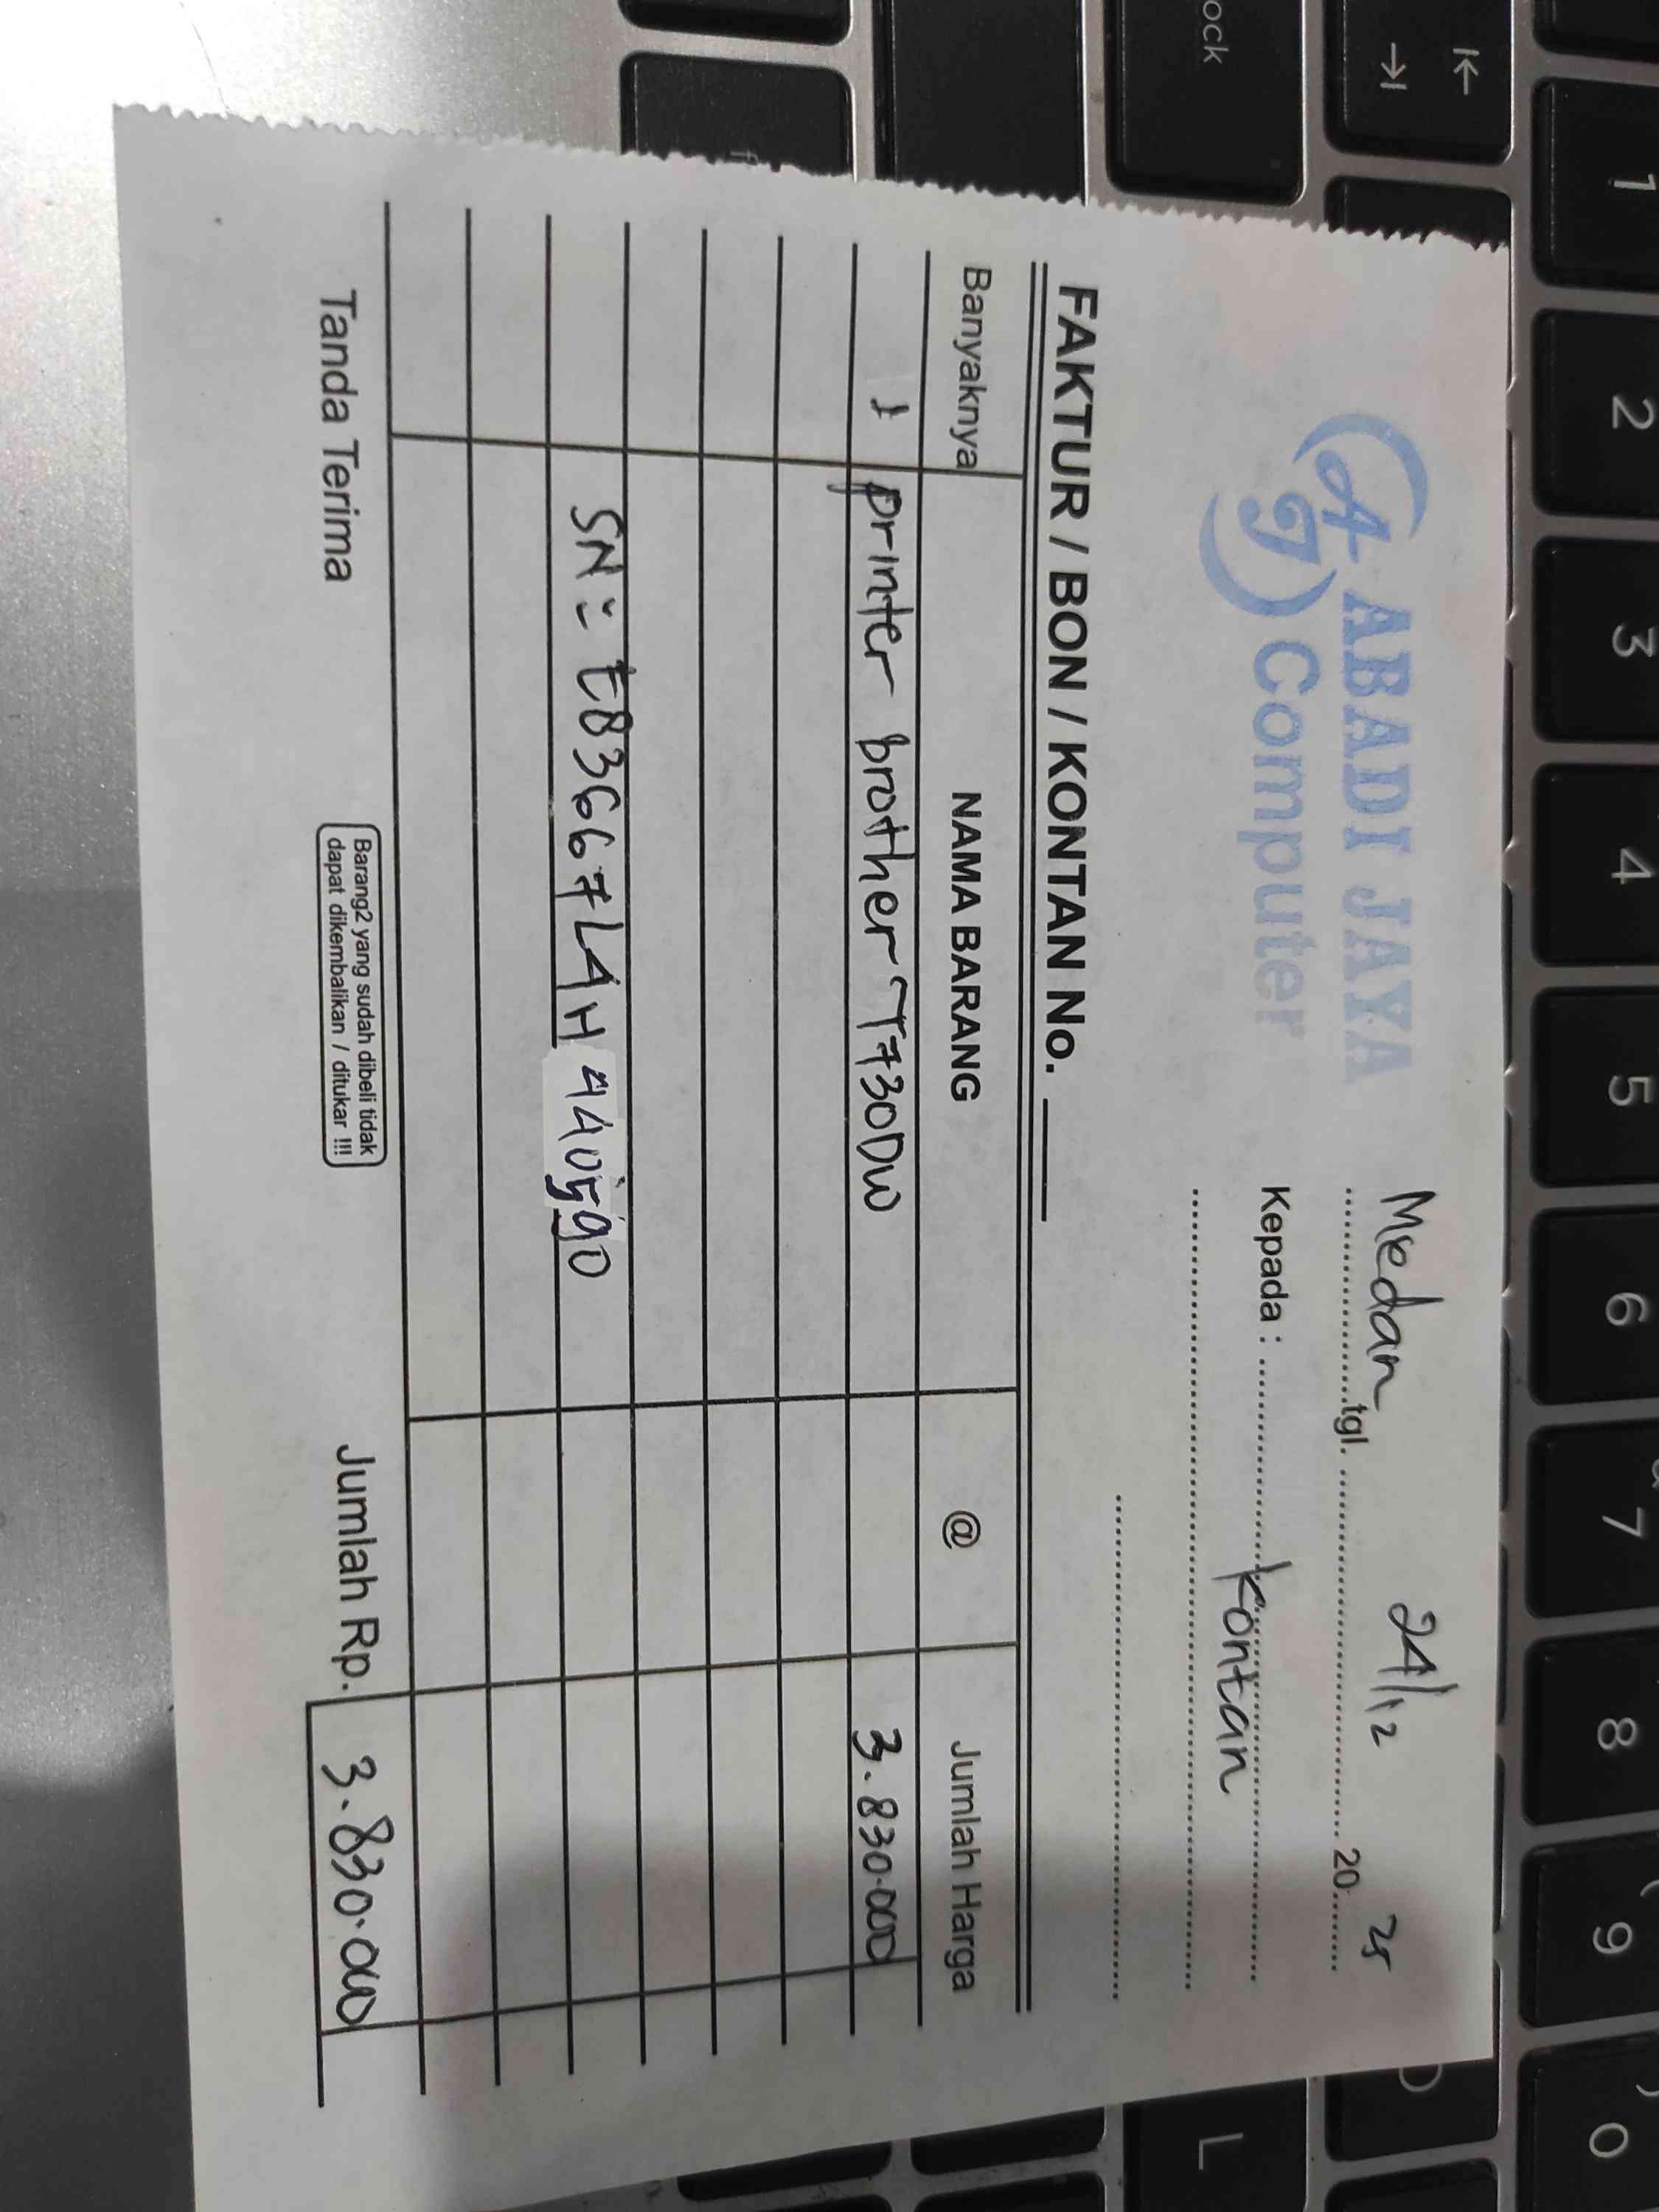 ABADI JAYA
AJ Computer
Medan tgl. 24/12 20 25
Kepada : kontan
FAKTUR / BON / KONTAN No.
Banyaknya NAMA BARANG @ Jumlah Harga
1 printer brother T730DW 3.830.000
SN : E83667L4H440590
Tanda Terima
Barang2 yang sudah dibeli tidak
dapat dikembalikan / ditukar !!!
Jumlah Rp. 3.830.000
ock
1
2
3
4
5
6
7
8
9
0
L